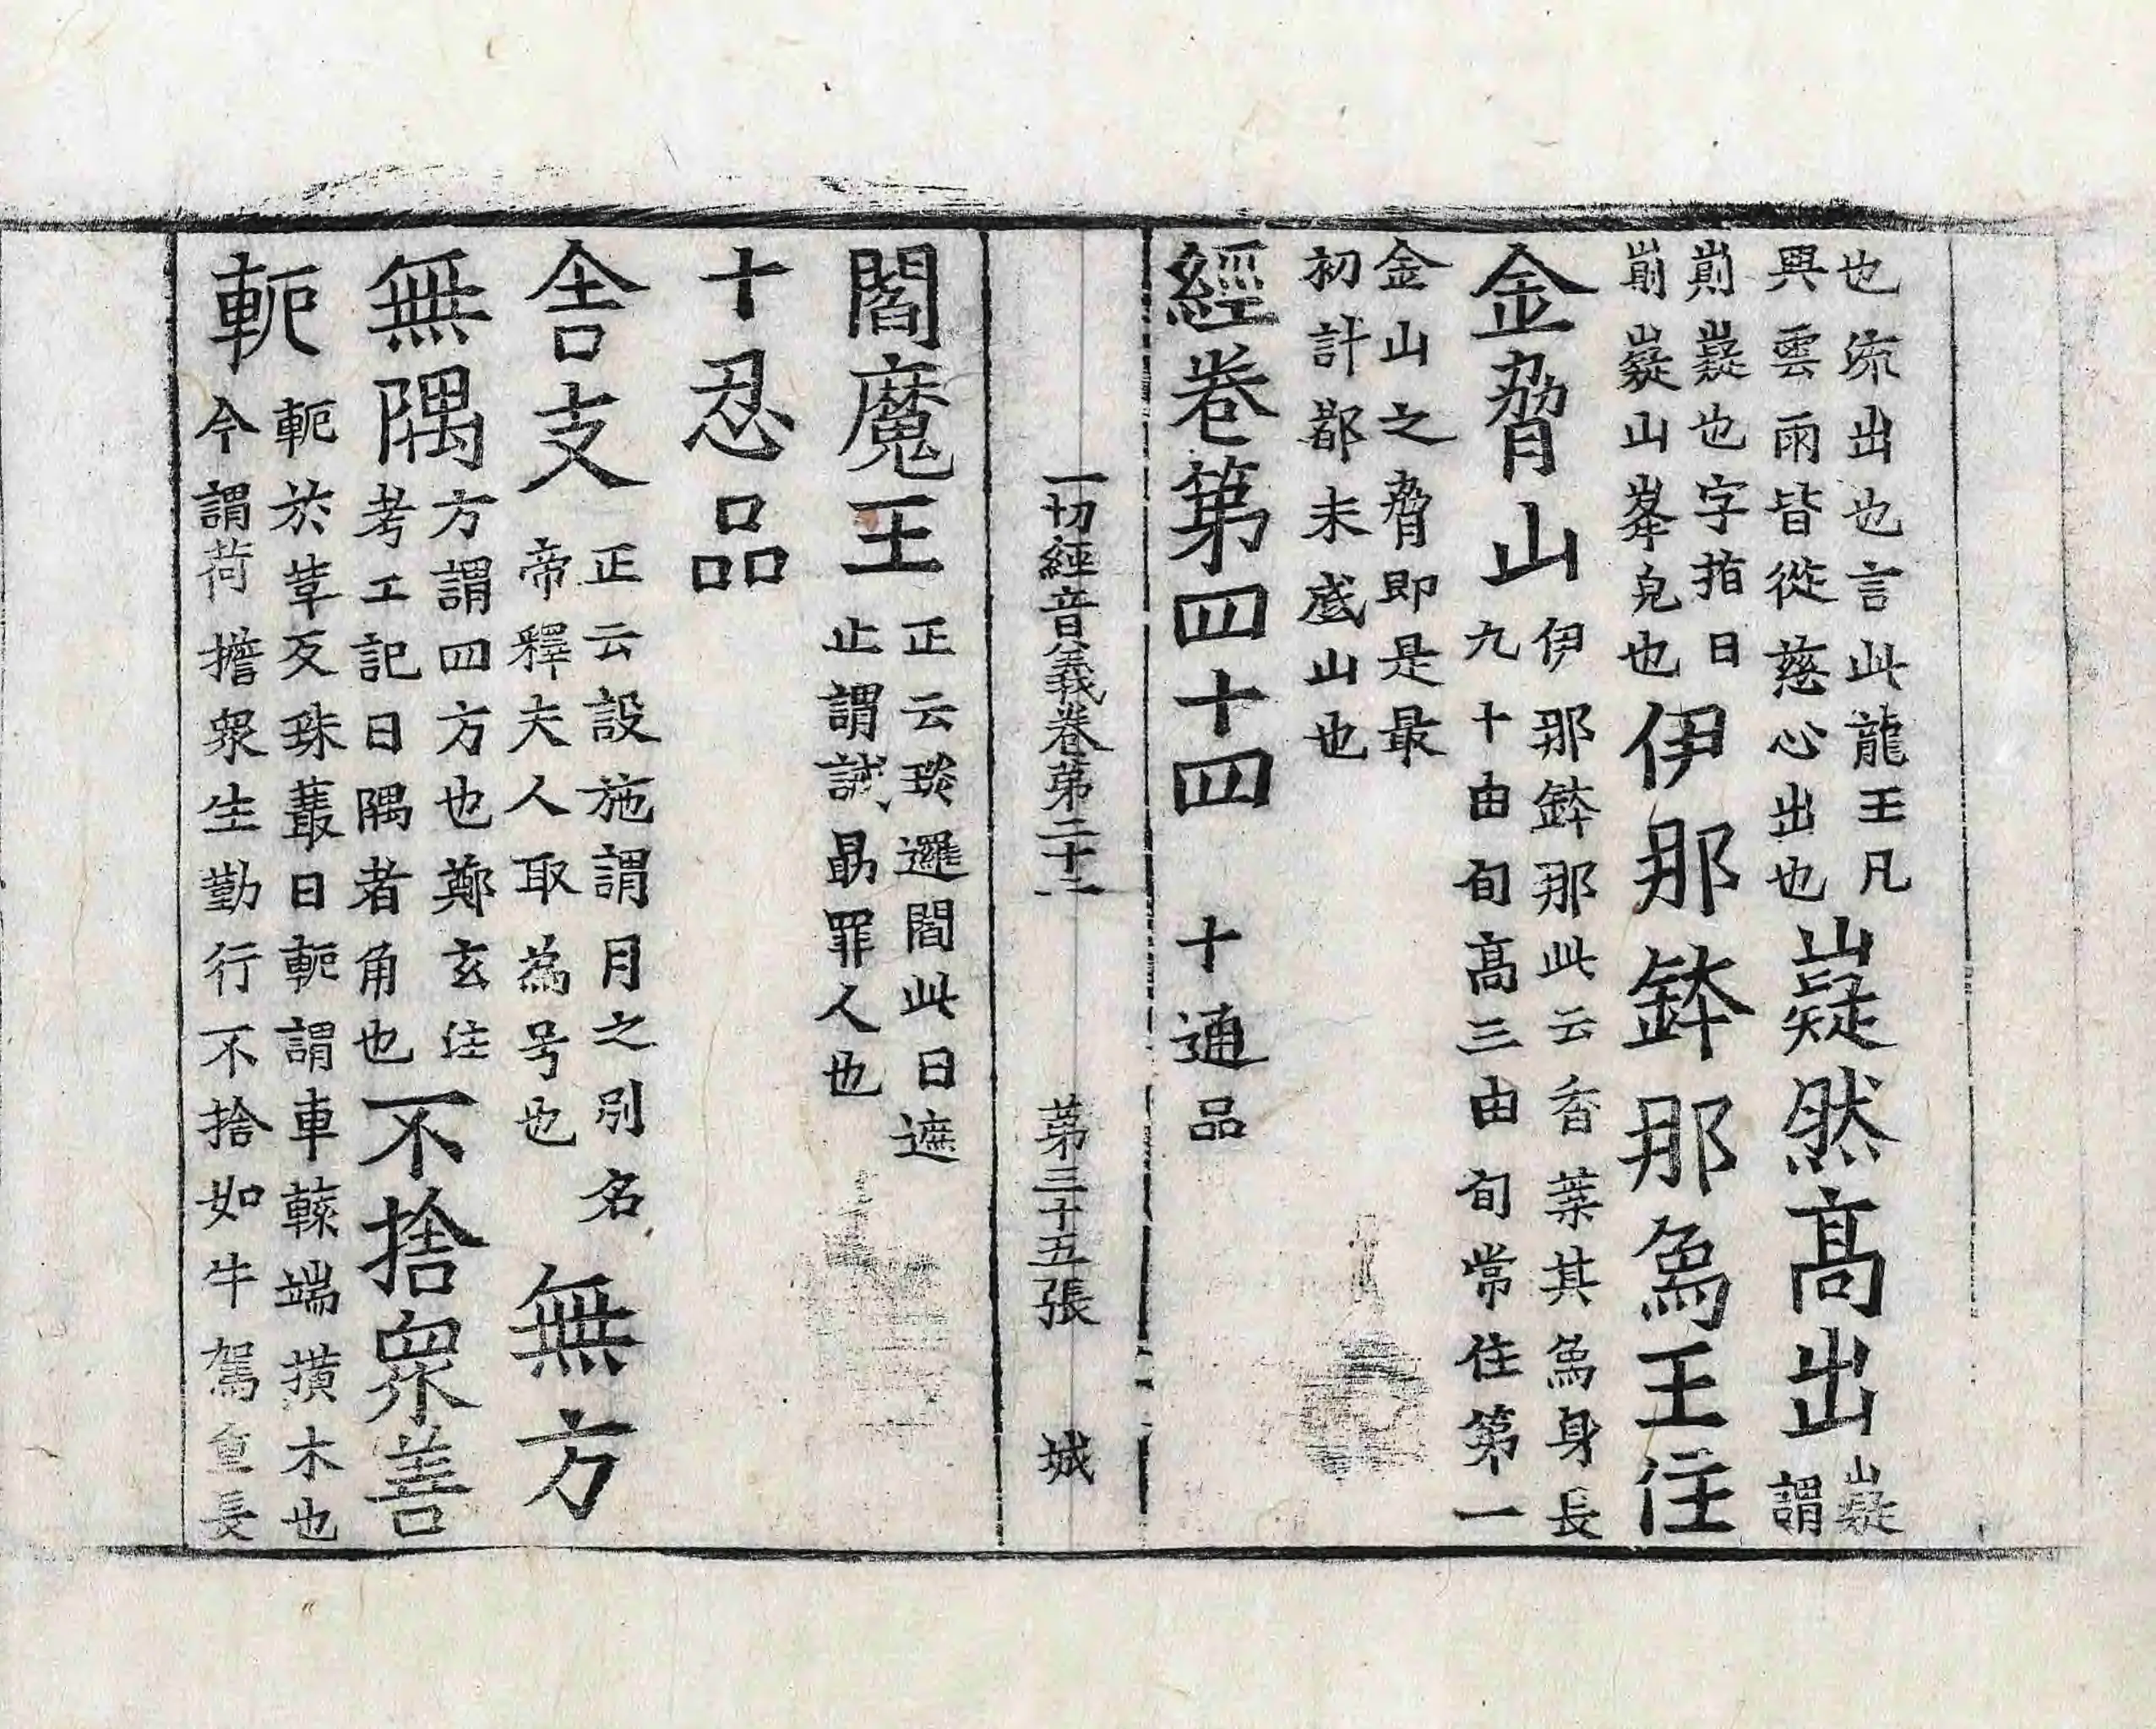 也流出也言此龍王凡
興雲雨皆從慈心出也
嶷然高出
嶷
謂
崱嶷也字指曰
崱嶷山峯皃也
伊那鉢那象王住
金脅山
伊那鉢那此云香葉其象身長
九十由旬高三由旬常住第一
金山之脅即是最
初計都末底山也
經卷第四十四 十通品
一切經音義卷第二十二 第三十五張 城
閻魔王
正云琰邏閻此曰遮
止謂誡勗罪人也
十忍品
舍支
正云設施謂月之別名
帝釋夫人取為号也
無方
無隅
方謂四方也鄭玄注
考工記曰隅者角也
不捨衆善
軛
軛於革反珠叢曰軛謂車轅端橫木也
今謂荷擔衆生勤行不捨如牛駕重長